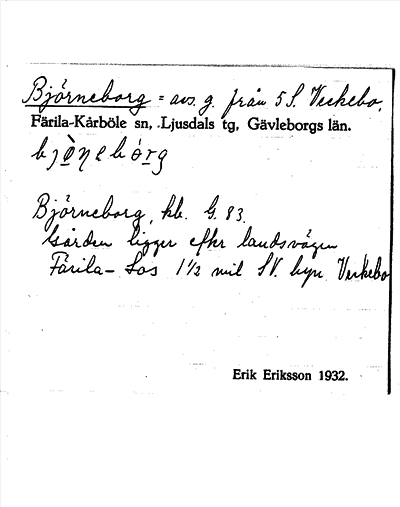 Björneborg = avs. g. från 5 S. Veckebo.
Färila-Kårböle sn, Ljusdals tg, Gävleborgs län.
bjò̱ŋebó̱rg
Björneborg, hb. G. 83.
Gården ligger efter landsvägen
Färila - Los 1 1/2 mil SV. byn Veckebo
Erik Eriksson 1932.